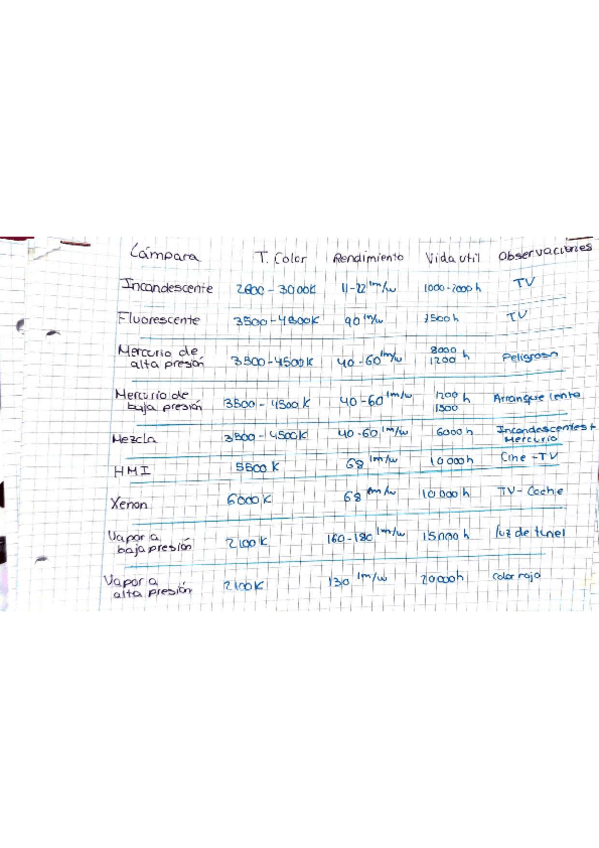 Lámpara T. Color Rendimiento Vida util Observaciones
Incandescente 2800 - 3000K 11-22 lm/w 1000-2000 h TV
Fluorescente 3500-4800K 90 lm/w 7500h TV
Mercurio de alta presión 3500-4500K 40-60 lm/w 8000 1200 h Peligroso
Mercurio de baja presión 3500-4500K 40-60 lm/w 1200 1500 h Arranque lento
Mezcla 3500-4500K 40-60 lm/w 6000 h Incandescentes + Mercurio
HMI 5500 K 68 lm/w 10 000h Cine - TV
Xenon 6000 K 68 lm/w 10 000 h TV - Coche
Vapor a baja presión 2100 K 160-180 lm/w 15000 h luz de tunel
Vapor a alta presión 2100 K 130 lm/w 20000 h color rojo